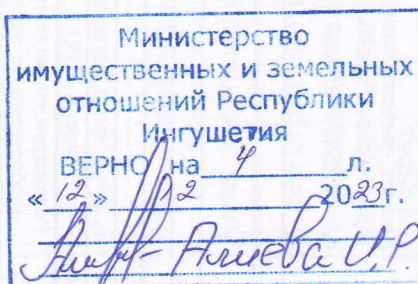 Министерство
имущественных и земельных
отношений Республики
Ингушетия
ВЕРНО на 4 л.
«12» 2 2023г.
Алиева И.Р.